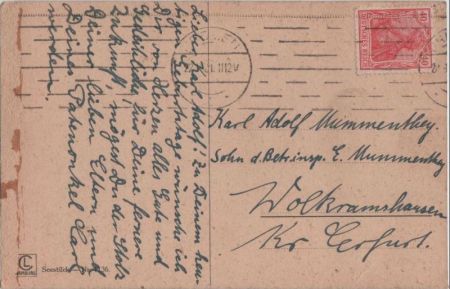 Lieber Karl Adolf! Zu Deinem heu-
tigen Geburtstage wünsche ich
Dir von Herzen alles Gute und
Gedeihliche für Deine fernere
Zukunft, mögst Du der Stolz
Deiner lieben Eltern und
Deines Patenonkel Carl
werden.
11-12V
Karl Adolf Mummenthey.
Sohn d. Betr. insp. E. Mummenthey
Wolkramshausen
Kr. Erfurt.
CL